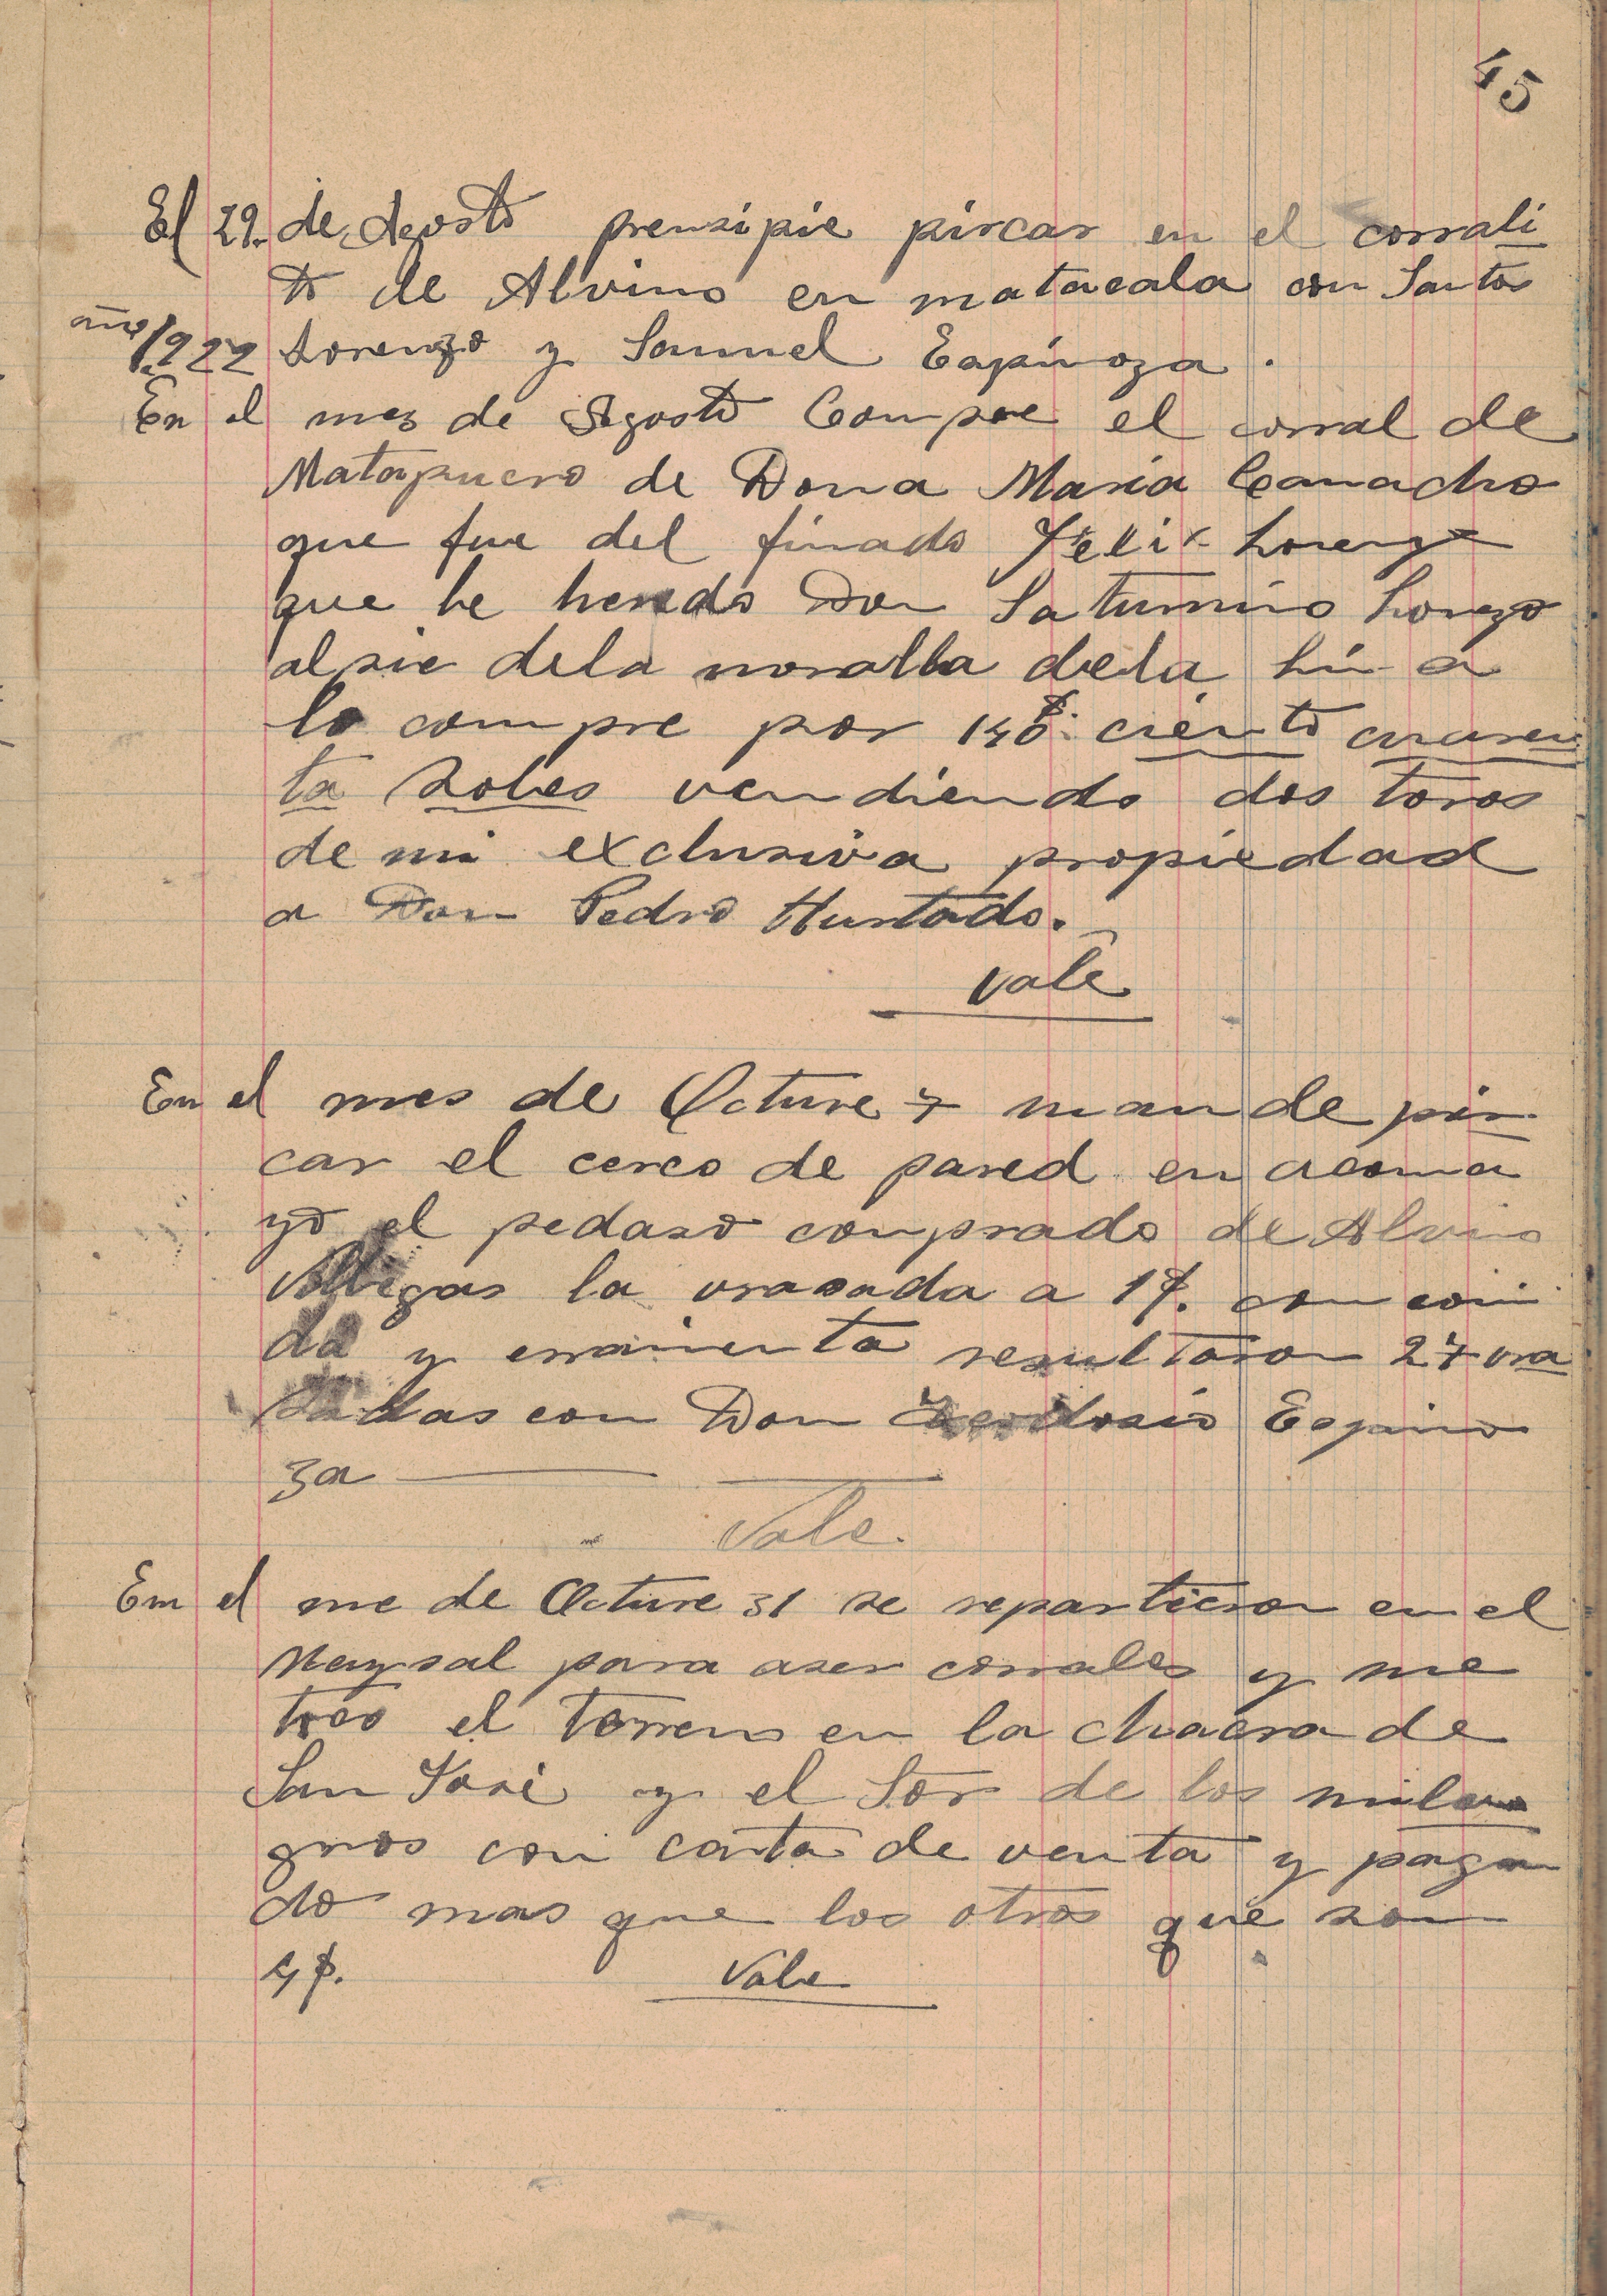 45
El 29. de Agosto prensipie pircar en el corrali
to de Alvino en matacala con Santos
año 1922 Lorenzo y Samuel Espinoza.
En el mes de Agosto Compre el corral de
Matapucro de Dona Maria Camacho
que fue del finado Felix Lorenzo
que he heredo Don Saturnino Lorenzo
al pie dela moralla dela
lo compre por 140 $. ciento cuaren
ta soles vendiendo dos toros
de mi exclusiva propiedad
a Don Pedro Hurtado.
Vale
En el mes de Octure 7 mande pir
car el cerco de pared en acoma
yo el pedaso comprado de Alvino
Villegas la vrasada a 1 $. con comi
da y erramienta resultaron 27 vra
sadas con Don Teodosio Espino
za
Vale.
En el me de Octure 31 se repartieron en el
para aser corrales y me
toco el torreno en la chacra de
San José y el Sor de los mila
gros con carta de venta y pagan
do mas que los otros que son
4 $.
Vale